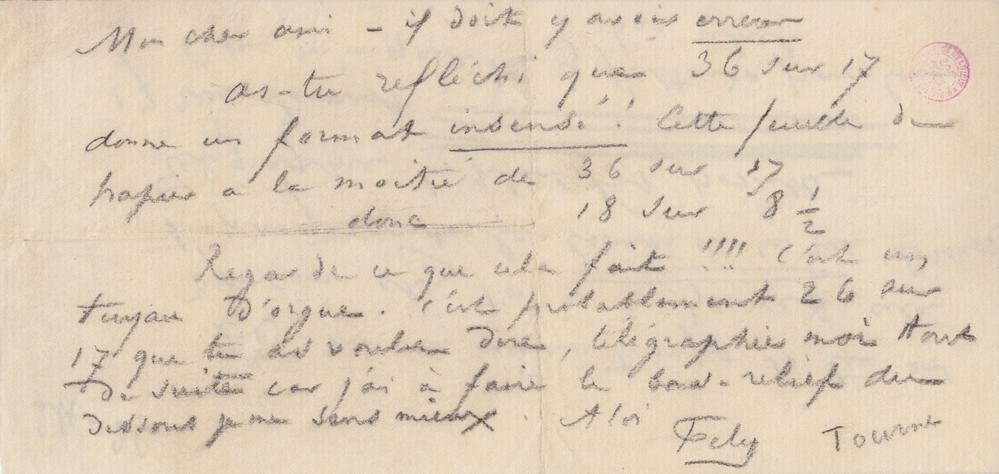 Mon cher ami – il doit y avoir erreur
as-tu refléchi que 36 sur 17
donne un format insensé ! Cette feuille de
papier a la moitié de 36 sur 17
donc 18 sur 8 1/2
Regarde ce que cela fait !!!! C'est un
tuyau d'orgue. C'est probablement 26 sur
17 que tu as voulu dire, télégraphies moi tout
de suite car j'ai à faire le bas-relief du
dessous je me sens mieux. A toi
Fély Tourne